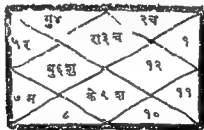 गु४ २च
५र रा३च १
बु६शु १२
७ म के९श ११
८ १०